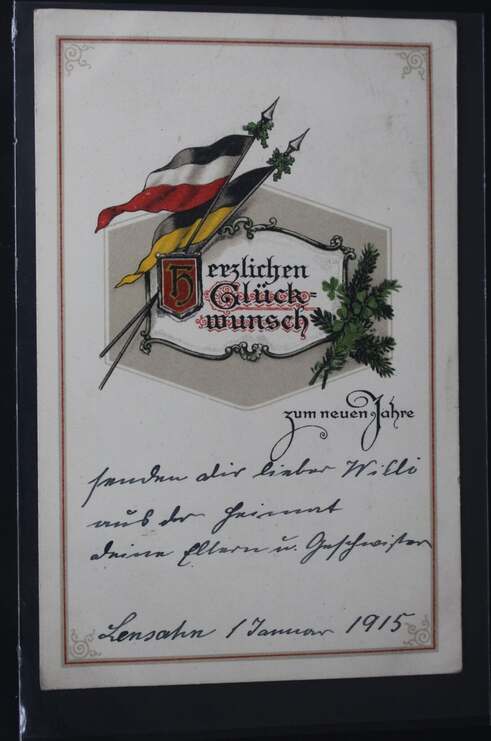 Herzlichen
Glück-
wunsch
zum neuen Jahre
senden dir lieber Willi
aus der Heimat
deine Eltern u. Geschwister
Lensahn 1 Januar 1915